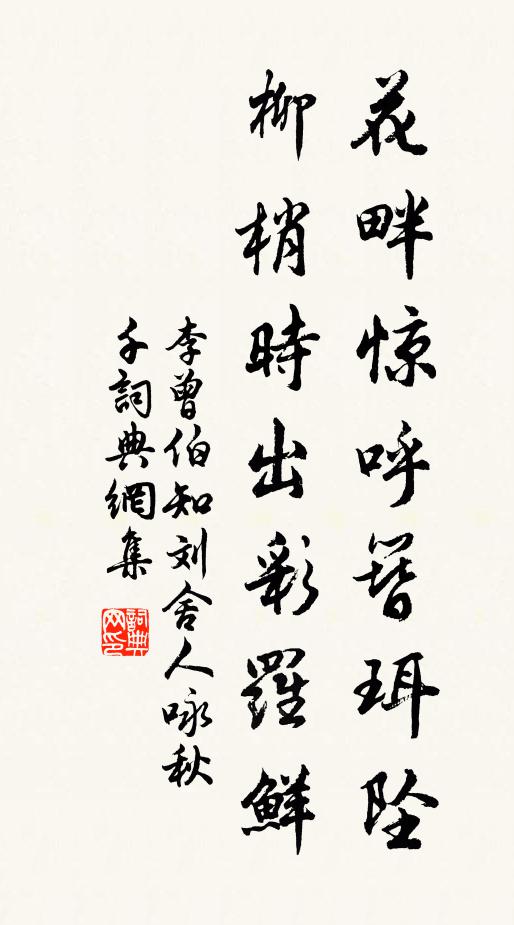 花畔惊呼簪珥坠
柳梢時出彩羅鮮
李曾伯知刘舍人咏秋
千詞典網集
詞典
网印